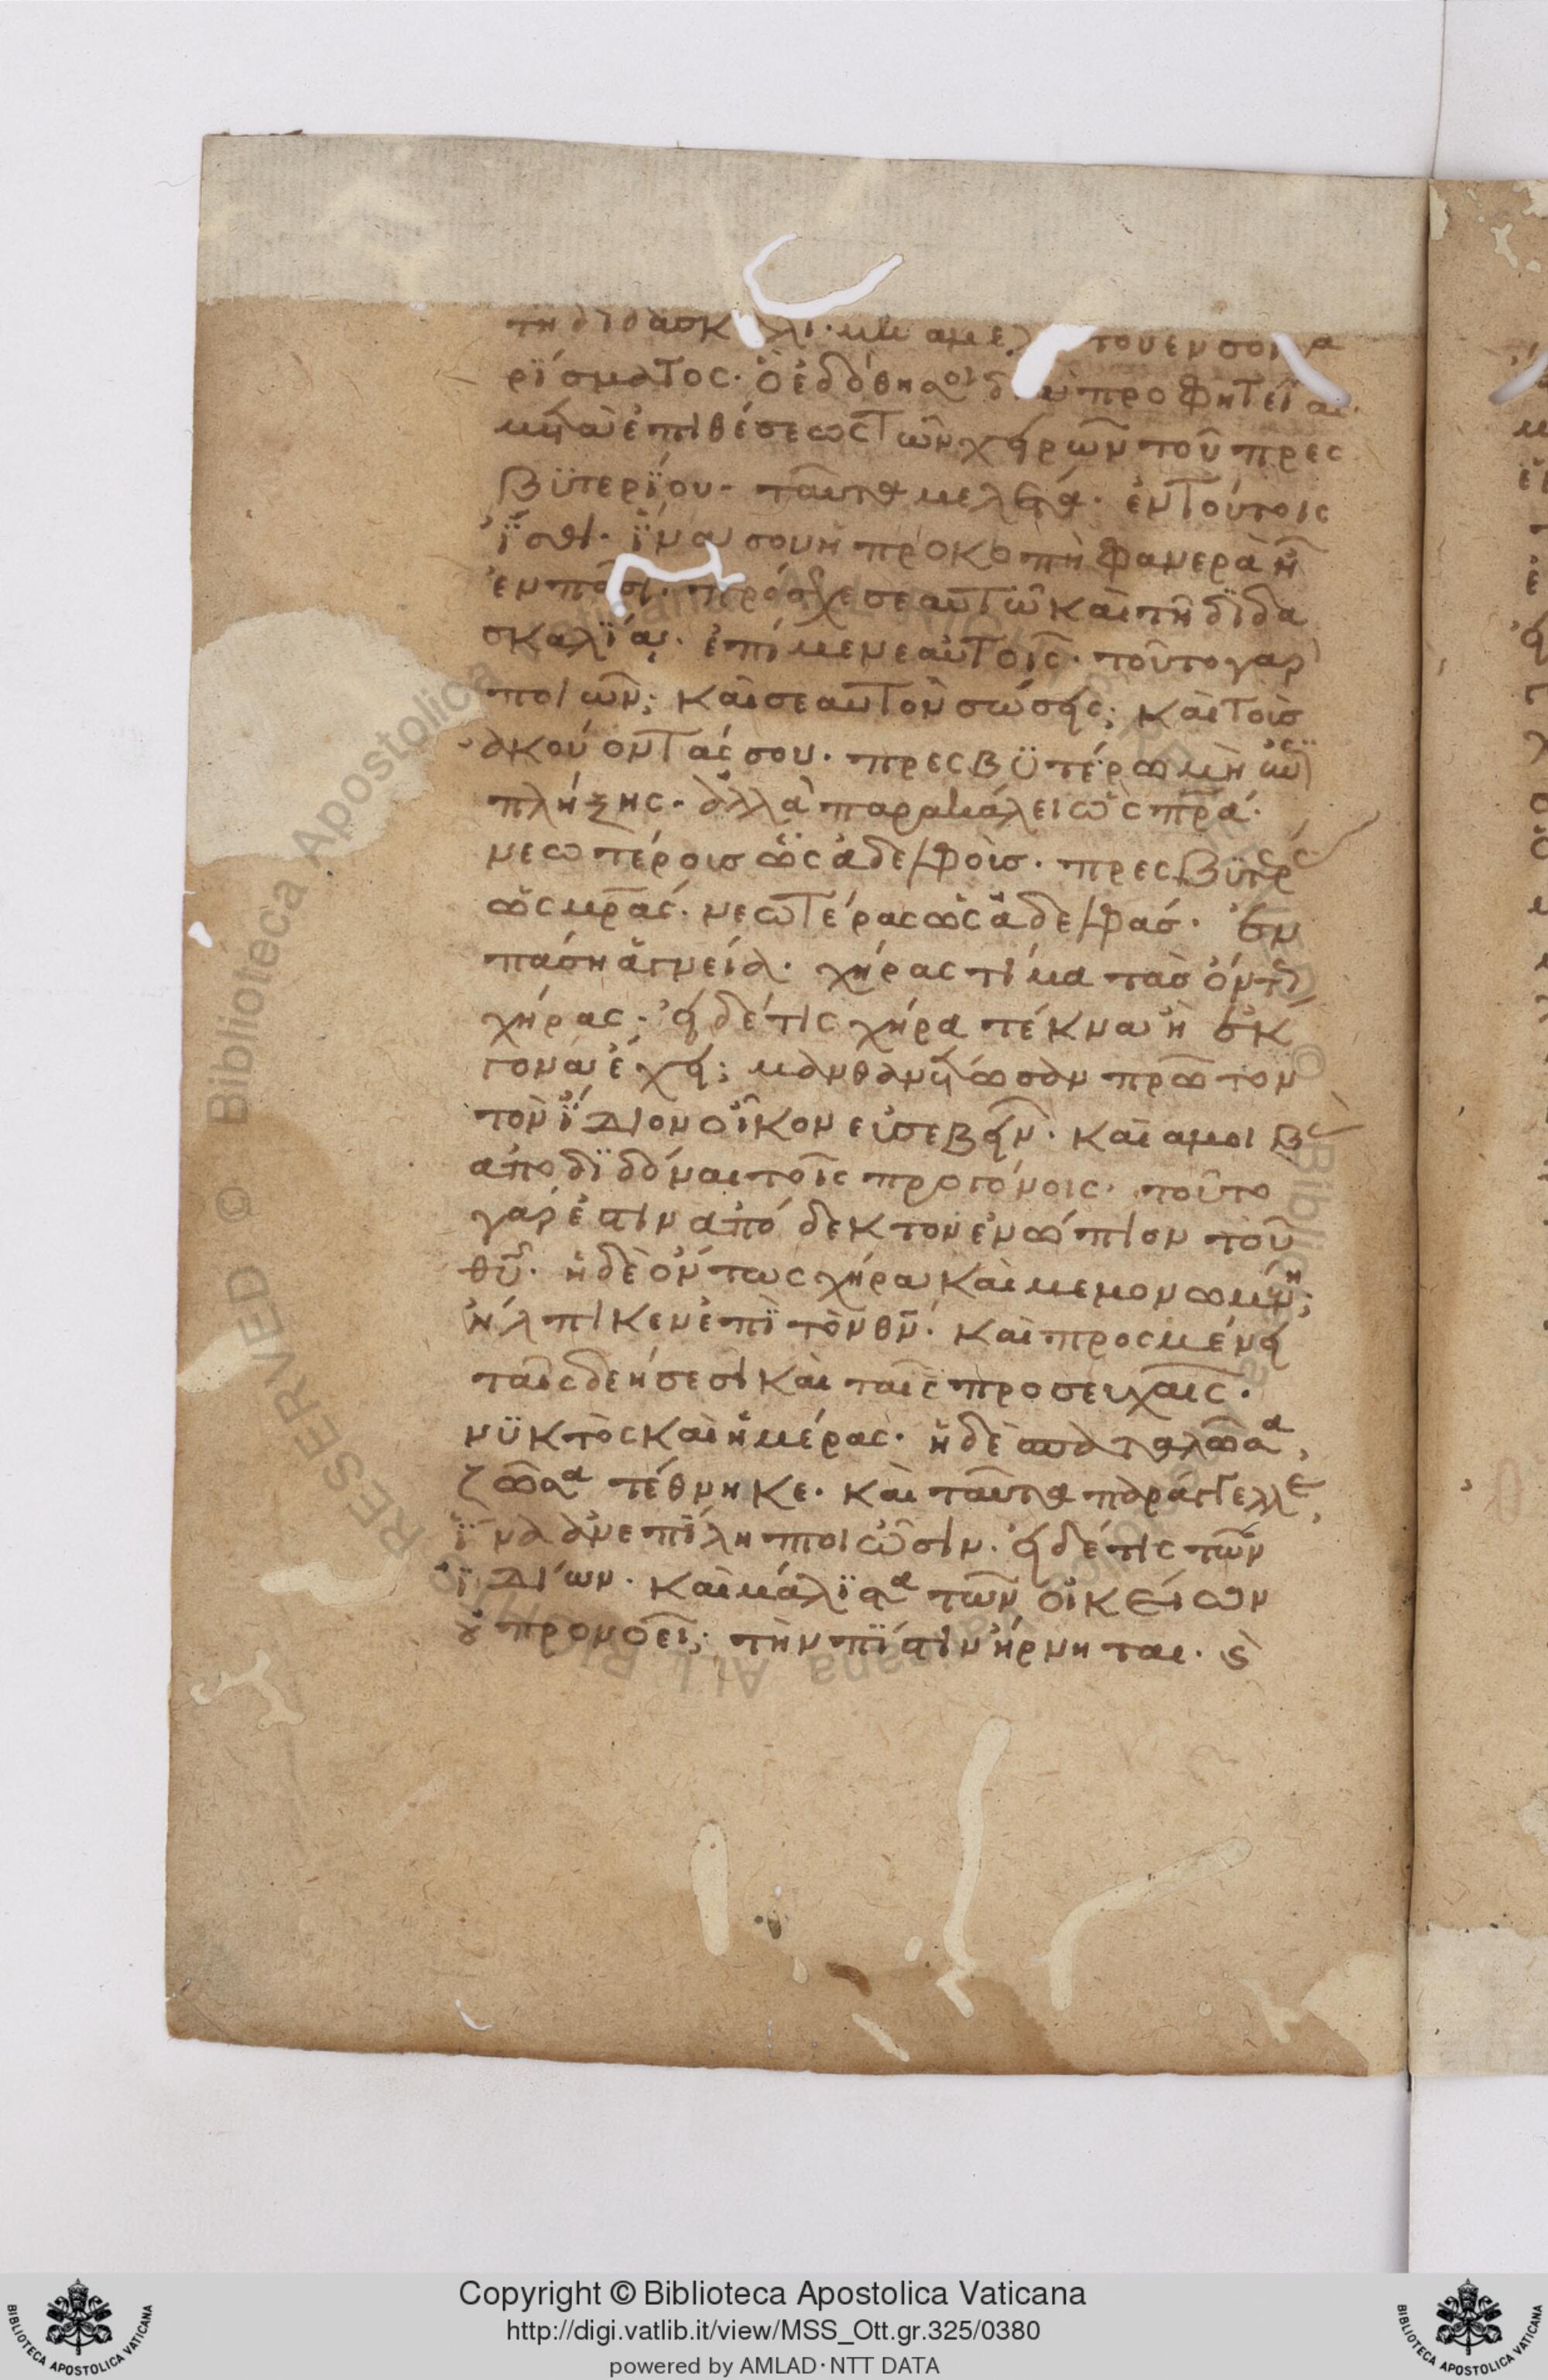 τη διδασκ λι· μὴ αμελ τουενσοι α
ρϊσματος· ὃ ἐδόθη σοι δια προφητεί ας
μετὰ ἐπιθέσεως τῶν χειρῶν τοῦ πρεσ
βϋτερΐου· ταῦτα μελέτα· ἐν τούτοις
ἴσθι· ἵνα σου ἡ προκοπὴ φανερὰ ῇ
ἐν πᾶσι· πρόσχε σεαυτῶ καὶ τῆ διδα
σκαλίᾳ· ἐπίμενε αὐτοῖς· τοῦτο γαρ
ποιῶν; καὶ σεαυτὸν σώσεις; καὶ τοὺσ
ἀκούοντάς σου· πρεσβϋτέρω μὴ ἐπι
πλήξης· ἀλλὰ παρακάλει ὡς πρ̅α·
νεωτέροισ ὡς ἀδελφοὺσ· πρεσβϋτέρας
ὡς μρ̅ας· νεωτέρας ὡς ἀδελφάσ· ἐν
πάση ἁγνεία· χήρας τίμα τὰσ ὄντως
χήρας· εἰ δέ τις χήρα τέκνα ἢ ἐκ
γονα ἔχει; μανθανέτωσαν πρῶτον
τὸν ἴδιον οἶκον εὐσεβεῖν· καὶ αμοιβὰς
ἀποδϊδόναι τοῖς προγόνοις· τοῦτο
γάρ ἐστιν ἀπόδεκτον ἐνώπιον τοῦ
θῦ· ἡ δὲ ὄντως χήρα καὶ μεμονωμένη;
ἤλπικεν ἐπϊ τὸν θν̅· καὶ προσμένει
ταῖς δεήσεσι καὶ ταῖς προσευχαῖς·
νϋκτὸς καὶ ἡμέρας· ἡ δὲ σπαταλῶσα,
ζῶσα τέθνηκε· καὶ ταῦτα παράγγελλε,
ἵνα ἀνεπΐληπτοι ὦσιν· εἰ δέ τις τῶν
ἰδίων· καὶ μάλϊστα τῶν οἰκείων
οὐ προνοεῖ; τὴν πΐστιν ἤρνηται· ϗ